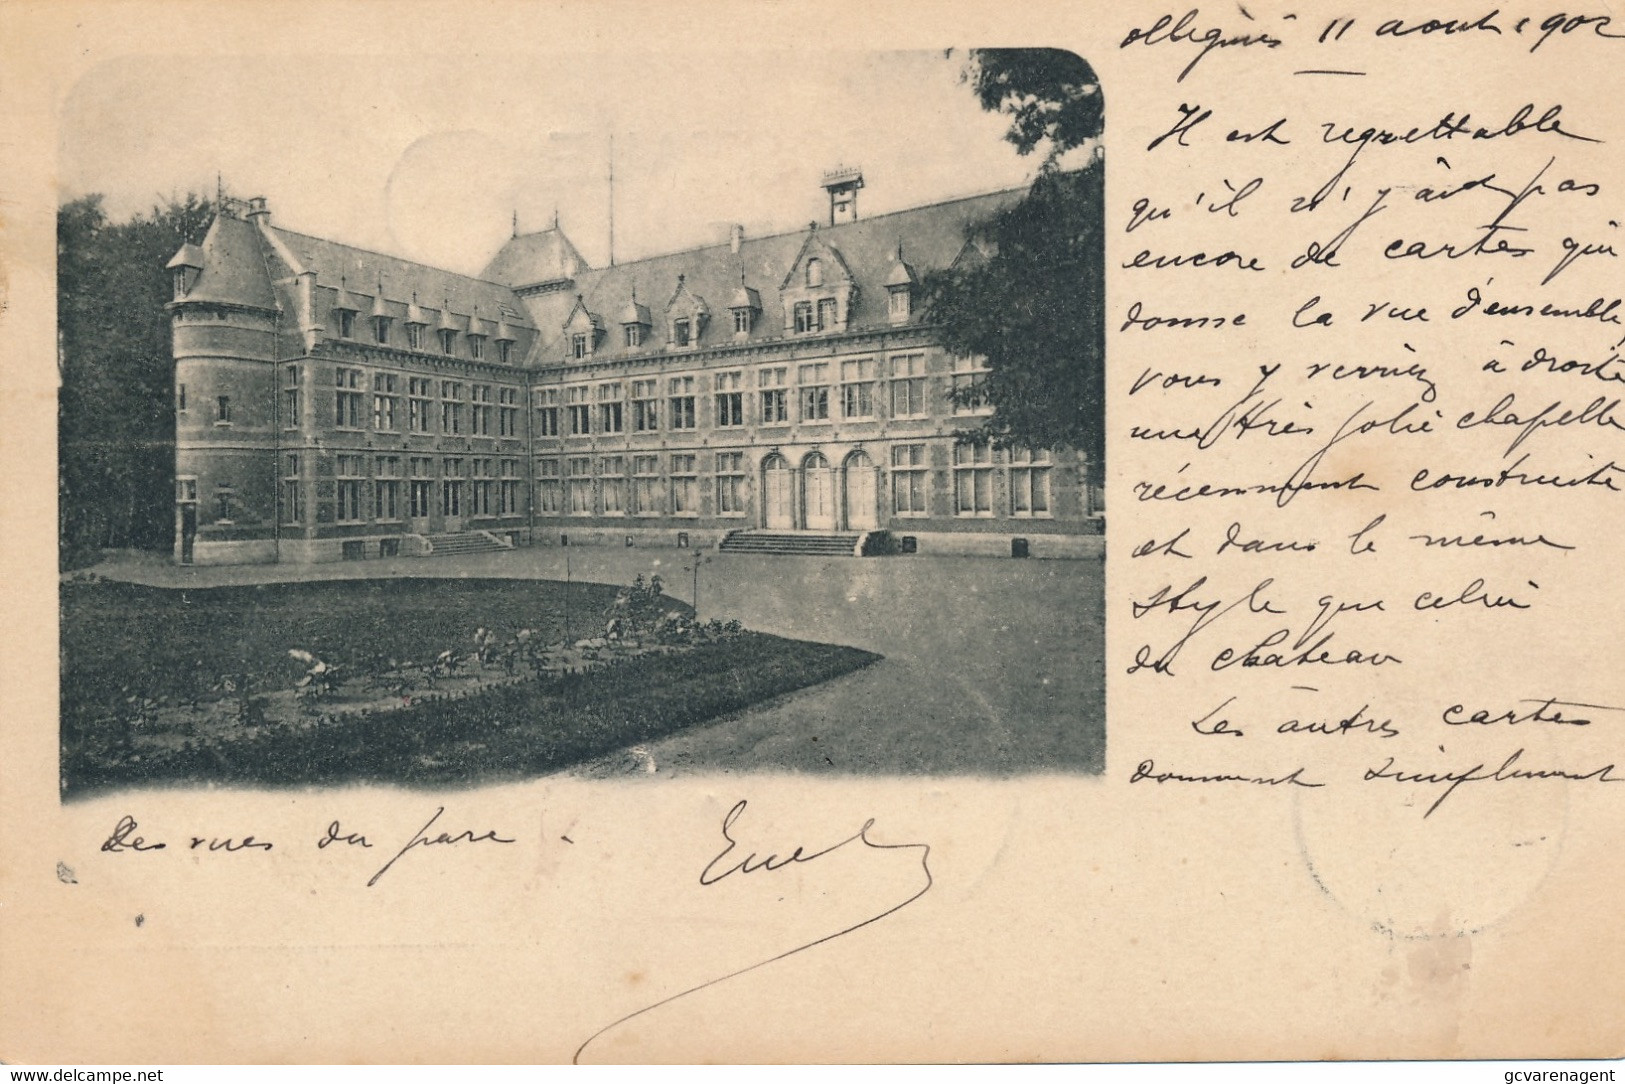 ollignies 11 aout 1902
Il est regrettable
qu'il n'y ait pas
encore de cartes qui
donne la vue d'ensemble,
vous y verriez à droite
une très jolie chapelle
récemment construite
et dans le même
style que celui
du chateau
Les autres cartes
donnent simplement
des vues du parc.
delcampe.net
gcvarenagent